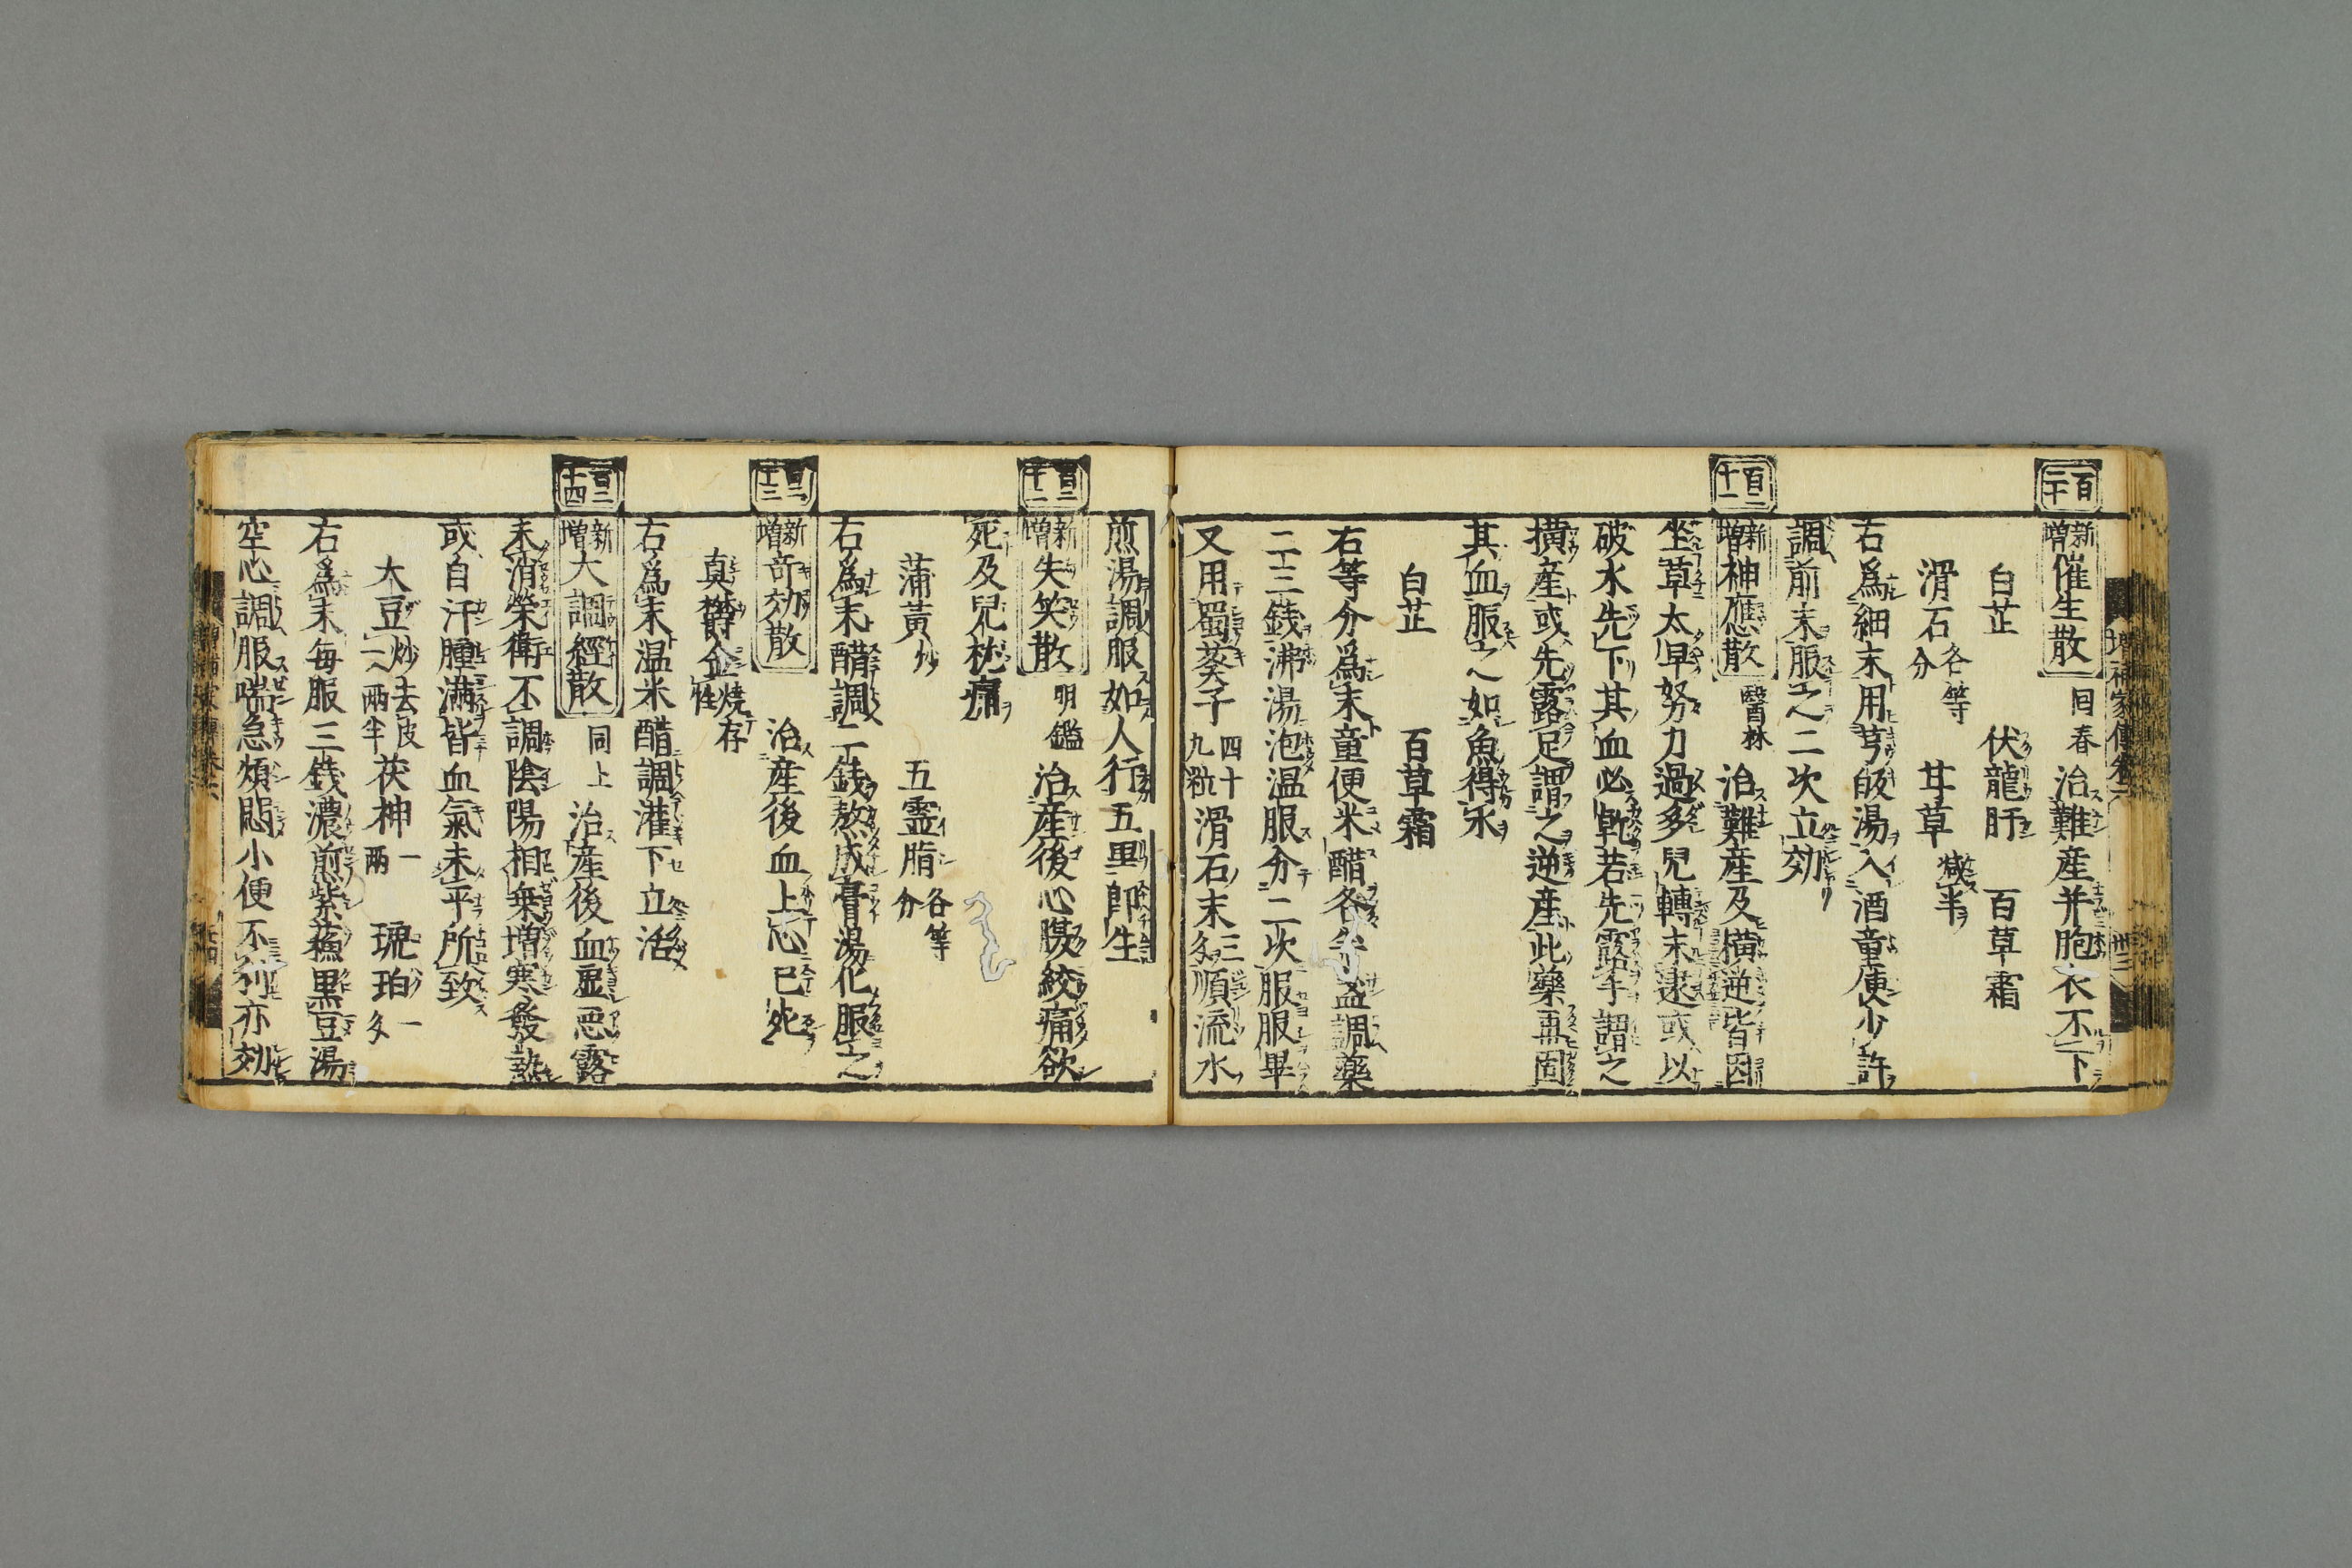 百二十
新増催生散 回春 治難産并胞衣不下
白芷 伏龍肝 百草霜
滑石各等分 甘草減半
右為細末用芎皈湯入酒童便少許
調前末服之二次立効
百二十一
新増神應散 醫林 治難産及横逆皆因
坐草太早努力過多兒轉未逮或以
破水先下其血必乾若先露手謂之
横産或先露足謂之逆産此藥再固
其血服之如魚得水
白芷 百草霜
右等分為末童便米醋各半盞調藥
二三錢沸湯泡温服分二次服服畢
又用蜀葵子四十九粒滑石末三戔順流水
煎湯調服如人行五里即生
百二十二
新増失笑散 明鑑 治産後心腹絞痛欲
死及兒枕痛
蒲黄炒 五霊脂各等分
右為末醋調二錢熬成膏湯化服之
百二十三
新増奇効散 治産後血上心已死
真欝金燒存性
右為末温米醋調灌下立活
百二十四
新増大調經散 同上 治産後血虚惡露
未消榮衛不調陰陽相乗増寒發熱
或自汗腫滿皆血氣未平所致
大豆炒去皮一兩半 茯神一兩 琥珀一戔
右為末毎服三錢濃煎紫蘓黒豆湯
空心調服喘急煩悶小便不利亦効